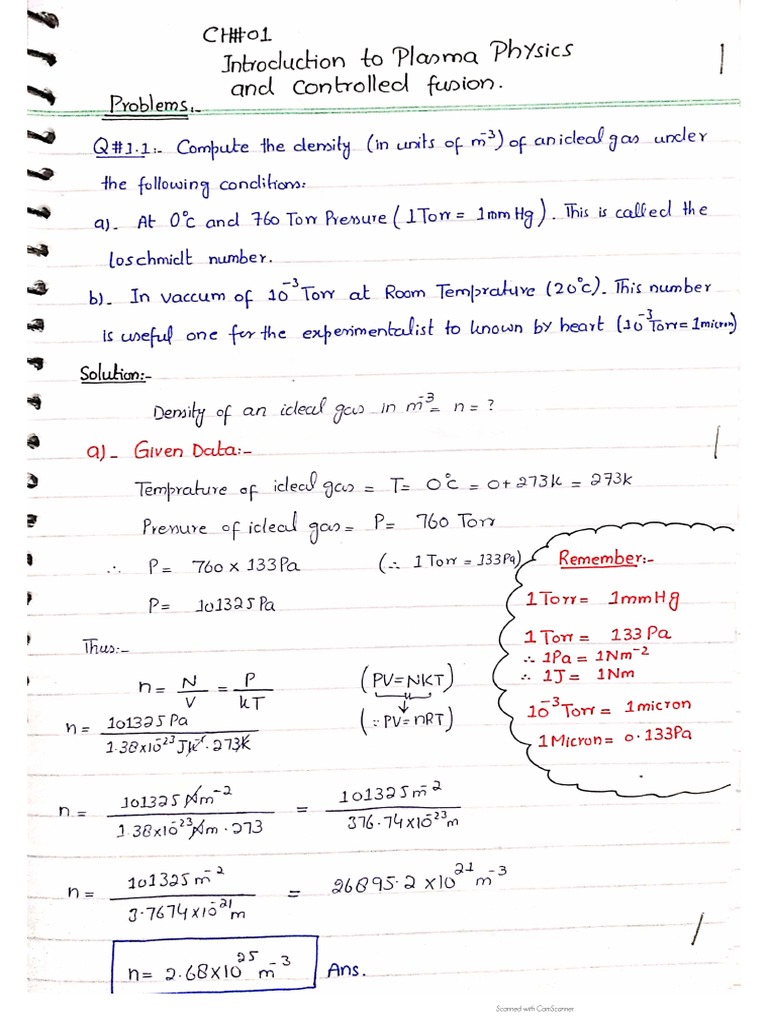 CH#01
Introduction to Plasma Physics
and controlled fusion.
1
Problems:-
Q#1.1:- Compute the density (in units of m⁻³) of an ideal gas under
the following conditions:
a)- At 0°c and 760 Torr Pressure (1Torr = 1mmHg). This is called the
loschmidt number.
b)- In vaccum of 10⁻³ Torr at Room Temprature (20°c). This number
is useful one for the experimentalist to known by heart (10⁻³Torr=1micron)
Solution:-
Density of an ideal gas in m⁻³= n= ?
a)- Given Data:-
Temprature of ideal gas = T= 0°c = 0+273k = 273k
Pressure of ideal gas= P= 760 Torr
∴ P= 760 x 133Pa (∴ 1Torr = 133Pa)
P= 101325Pa
Remember:-
1Torr= 1mmHg
1Torr= 133Pa
∴ 1Pa = 1Nm⁻²
∴ 1J = 1Nm
10⁻³Torr= 1micron
1Micron= 0.133Pa
Thus:-
n= N/V = P/kT (PV=NKT)
(∵PV=nRT)
n= 101325Pa / 1.38x10⁻²³Jk⁻¹.273k
n= 101325Nm⁻² / 1.38x10⁻²³Nm.273 = 101325m⁻² / 376.74x10⁻²³m
n= 101325m⁻² / 3.7674x10⁻²¹m = 26895.2x10²¹m⁻³
n= 2.68x10²⁵m⁻³ Ans.
Scanned with CamScanner